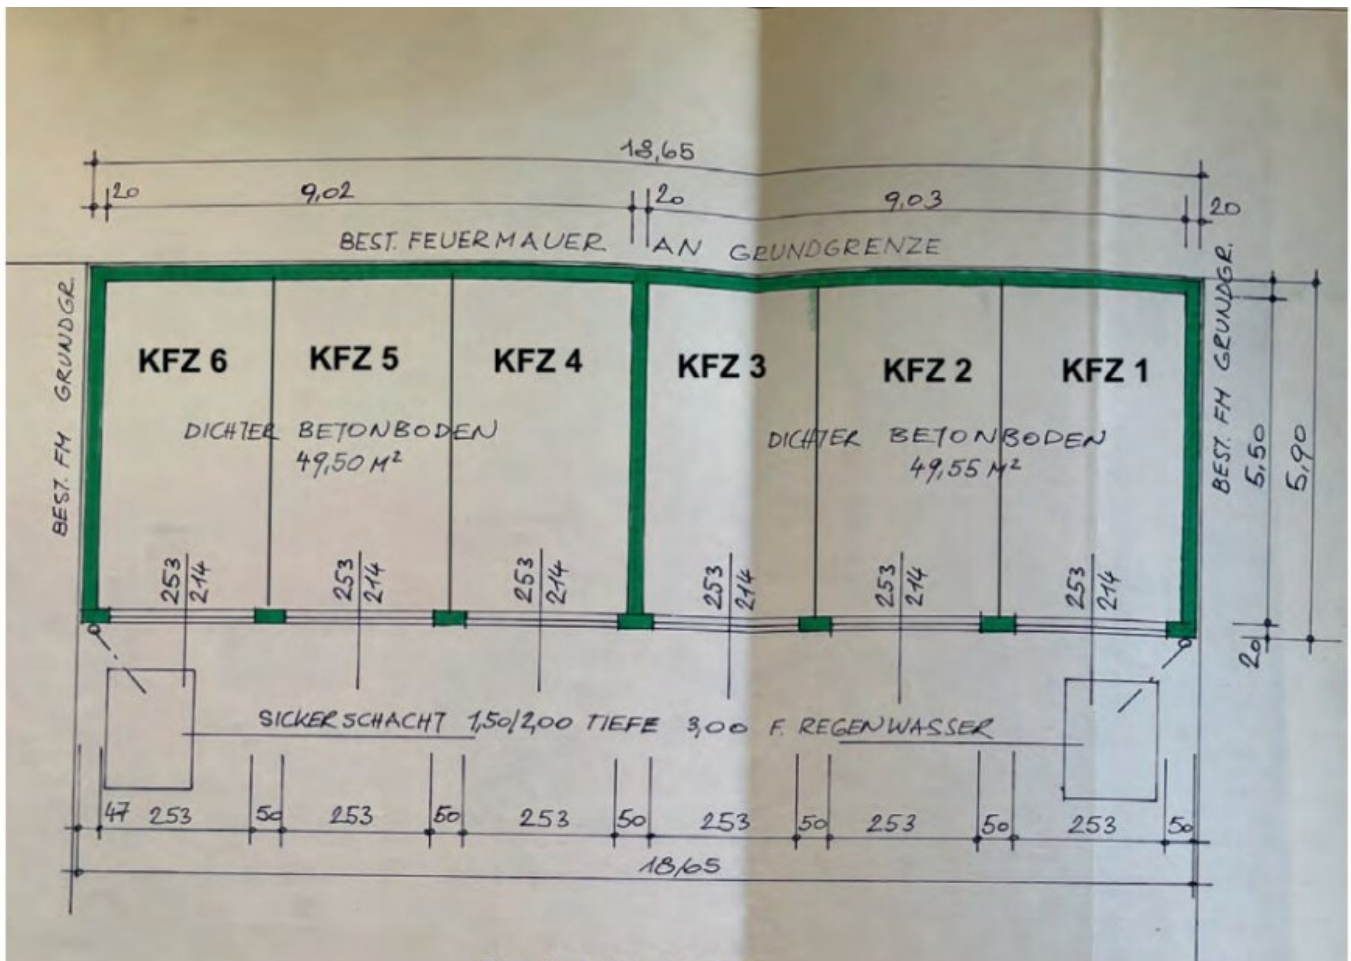 18,65
20 9,02 20 9,03 20
BEST. FEUERMAUER AN GRUNDGRENZE
BEST. FM GRUNDGR.
BEST. FM GRUNDGR.
KFZ 6 KFZ 5 KFZ 4 KFZ 3 KFZ 2 KFZ 1
DICHTER BETONBODEN
49,50 M²
DICHTER BETONBODEN
49,55 M²
5,50
5,90
20
253 253 253 253 253 253
214 214 214 214 214 214
SICKERSCHACHT 1,50/2,00 TIEFE 3,00 F. REGENWASSER
47 253 50 253 50 253 50 253 50 253 50 253 50
18,65